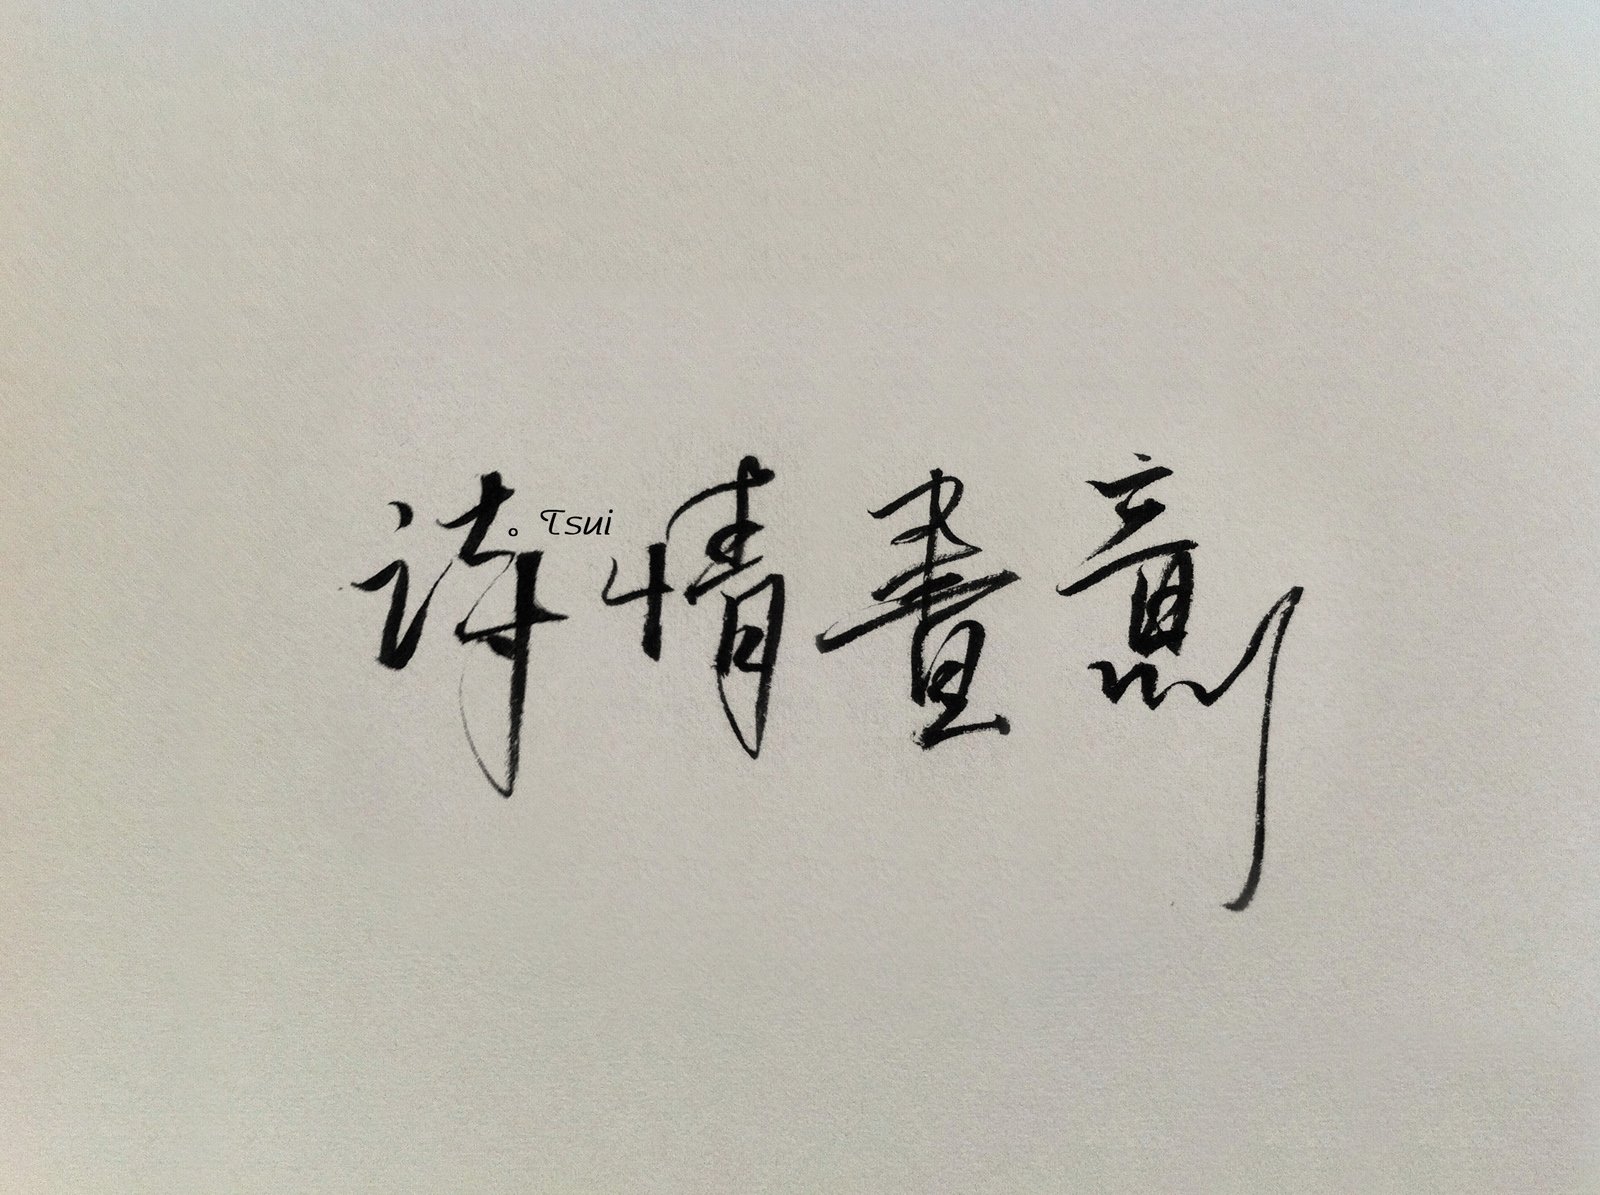 诗情畫意
。Tsui